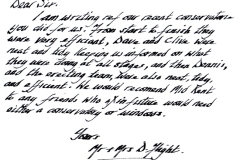 Dear Sir,
I am writing ref our recent conservatory
you did for us. From start to finish they
were very efficient, Dave and Clive were
neat and tidy keeping us informed on what
they were doing at all stages, and then Dennis,
and the erecting team, were also neat, tidy,
and efficient. We would recomend Mid Kent
to any friends who of in future would need
either a conservatory or windows.
Yours
Mr & Mrs D. Hight.